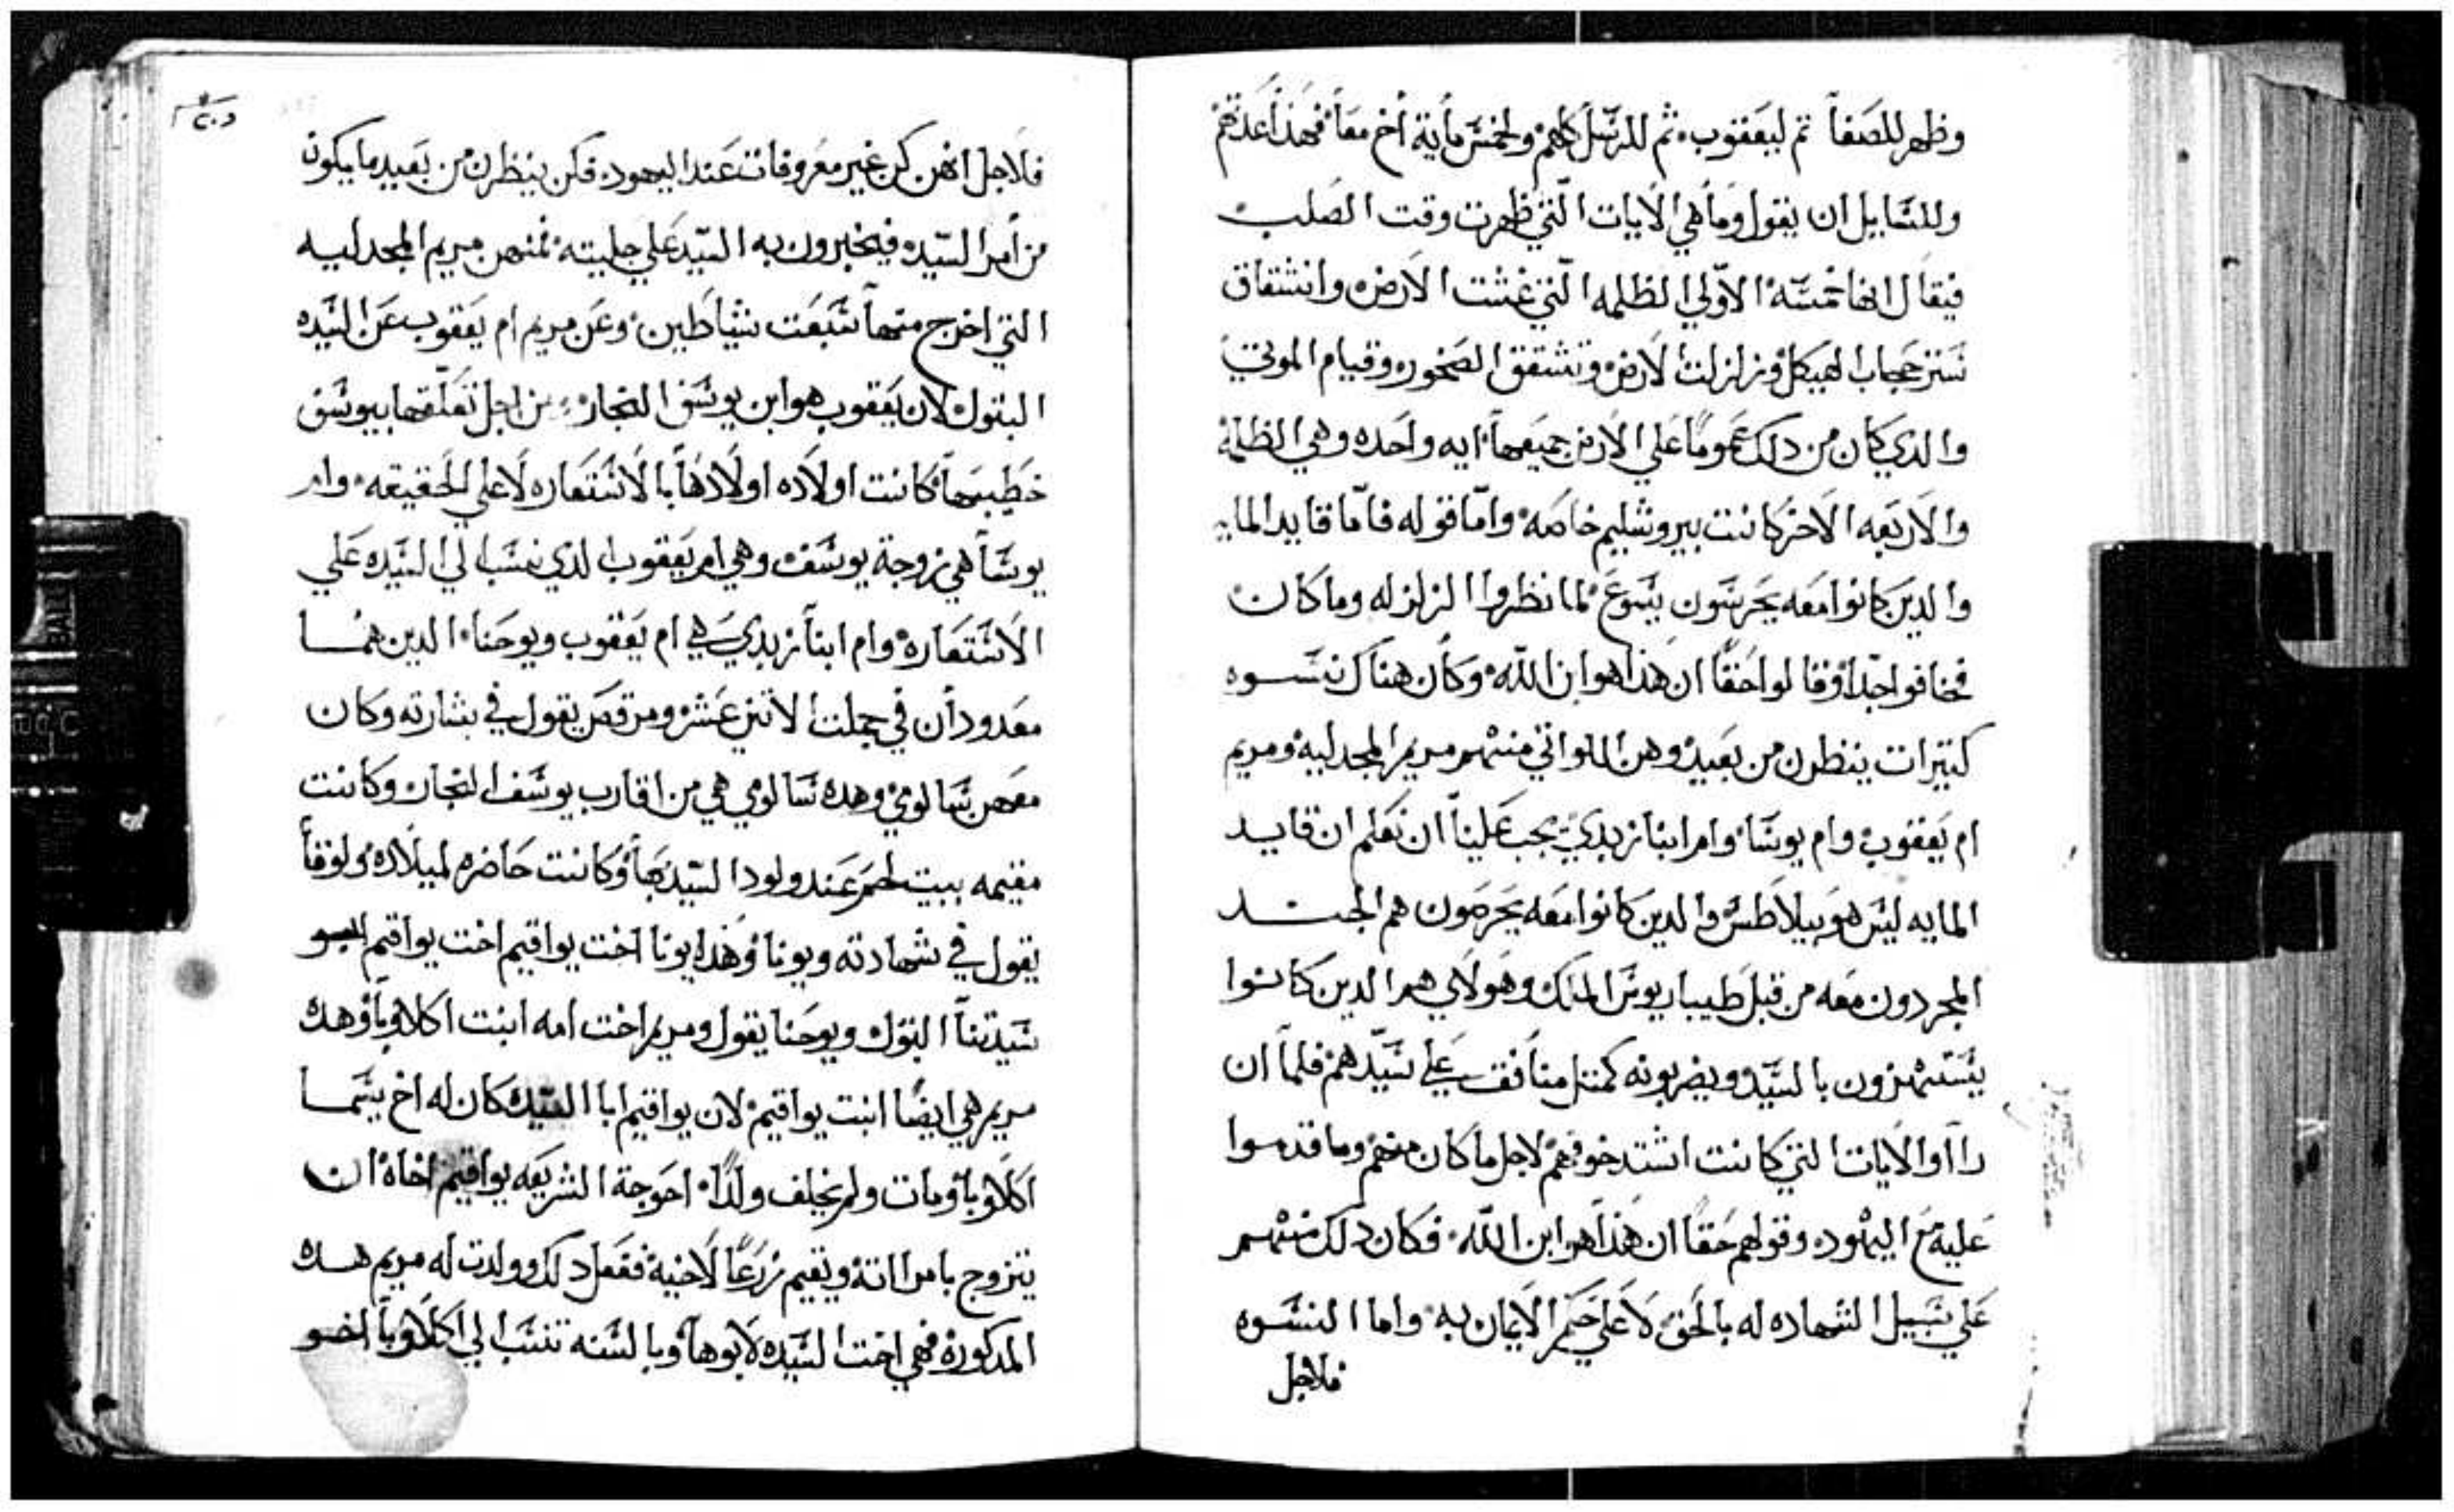 وظهر للصفا تم ليعقوب ثم للرسل كلهم ولخمس ماية اخ معا فهذا عدتهم
وللسايل ان يقول وما هي الايات التي ظهرت وقت الصلب
فيقال انها خمسه الاولي الظلمه التي غشت الارض وانشقاق
ستر حجاب الهيكل وزلزلت الارض وتشقق الصخور وقيام الموتي
والدي كان من دلك عموما علي الارض جميعها ايه واحده وهي الظلمة
والاربعه الاخر كانت بيروشليم خاصه واما قوله فاما قايد المايه
والدين كانوا معه يحرسون يسوع لما نظروا الزلزله وما كان
فخافوا جدا وقالوا حقا ان هذا هو ابن الله وكان هناك نسوه
كتيرات ينظرن من بعيد وهن اللواتي منهم مريم المجدليه ومريم
ام يعقوب وام يوسا وام ابنا زبدي يجب علينا ان نعلم ان قايد
المايه ليس هو بيلاطس والدين كانوا معه يحرصون هم الجند
المجردون معه من قبل طيباريوس الملك وهولاي هم الدين كانوا
يستهزون بالسيد ويضربونه كمتل منافق علي سيدهم فلما ان
رااوا الايات التي كانت اشتد خوفهم لاجل ما كان منهم وما قدموا
عليه مع اليهود وقولهم حقا ان هذا هو ابن الله فكان دلك منهم
علي سبيل الشهاده له بالحق لا علي حكم الايمان به واما النسوه
فلاجل
فلاجل انهن كن غير معروفات عند اليهود فكن ينظرن من بعيد ما يكون
من امر السيد فيخبرون به السيد علي جليته فمنهن مريم المجدليه
التي اخرج منها سبعت شياطين وعن مريم ام يعقوب عن السيده
البتول لان يعقوب هو ابن يوسف النجار من اجل تعلقها بيوسف
خطيبها كانت اولاده اولادها بالاستعاره لا علي الحقيقه وام
يوسا هي زوجة يوسف وهي ام يعقوب الدي نسب الي السيده علي
الاستعاره وام ابنا زبدي هي ام يعقوب ويوحنا الدين هما
معدودان في جملت الاتني عشر ومرقص يقول في بشارته وكان
معهن سالومي وهده سالومي هي من اقارب يوسف النجار وكانت
مقيمه ببيت لحم عند ولود السيد بها وكانت حاضره لميلاده ولوقا
يقول في شهادته ويونا وهده يونا اخت يواقيم اخت يواقيم ابو
سيدتنا البتول ويوحنا يقول ومريم اخت امه ابنت اكلاوبا وهده
مريم هي ايضا ابنت يواقيم لان يواقيم ابا السيده كان له اخ يسما
اكلاوبا ومات ولم يخلف ولدا احوجة الشريعه يواقيم اخاه ان
يتزوج بامراته ويقيم زرعا لاخيه ففعل دلك وولدت له مريم هده
المدكوره فهي اخت السيده لابوها وبالسنه تنسب الي اكلاوبا اخو